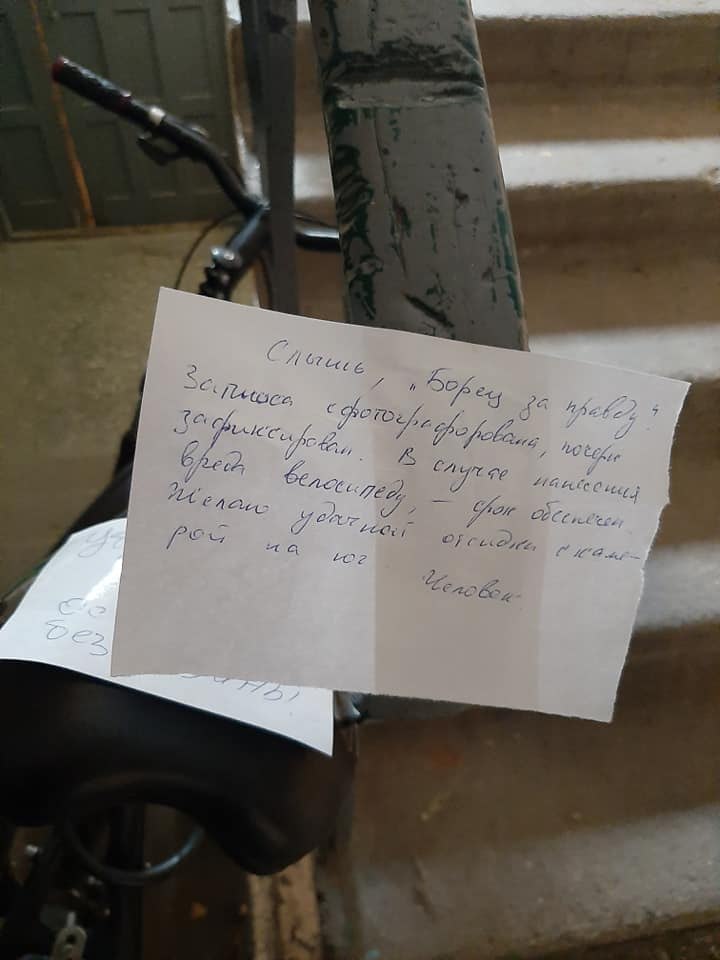 Слышь, „Борец за правду“
Записка сфотографорована, почерк
зафиксирован. В случае нанесения
вреда велосипеду, – срок обеспечен.
Желаю удачной отсидки с каме-
рой на юг
Человек.
без